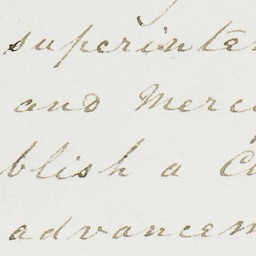 superinte
and Merc
blish a C
advancem